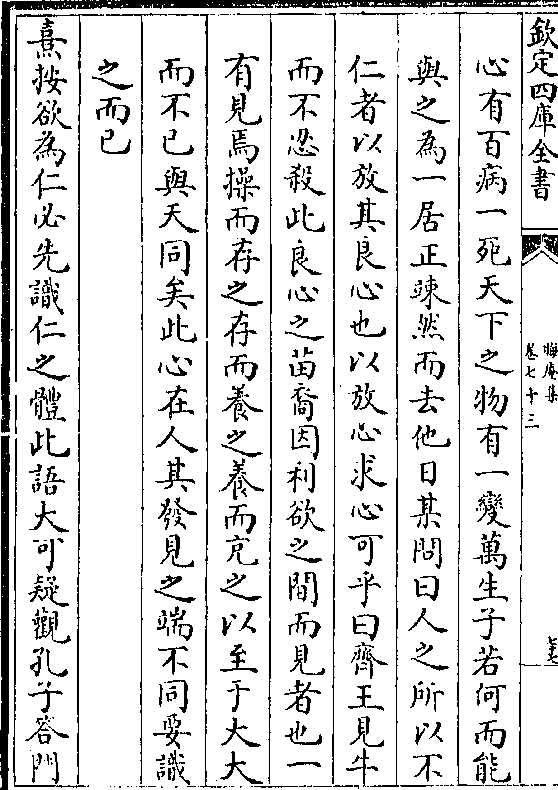 欽定四庫全書
晦庵集
卷七十三
心有百病一死天下之物有一變萬生子若何而能
與之為一居正竦然而去他日某問曰人之所以不
仁者以放其良心也以放心求心可乎曰齊王見牛
而不忍殺此良心之苗裔因利欲之間而見者也一
有見焉操而存之存而養之養而充之以至于大大
而不已與天同矣此心在人其發見之端不同要識
之而已
熹按欲為仁必先識仁之體此語大可疑觀孔子答門